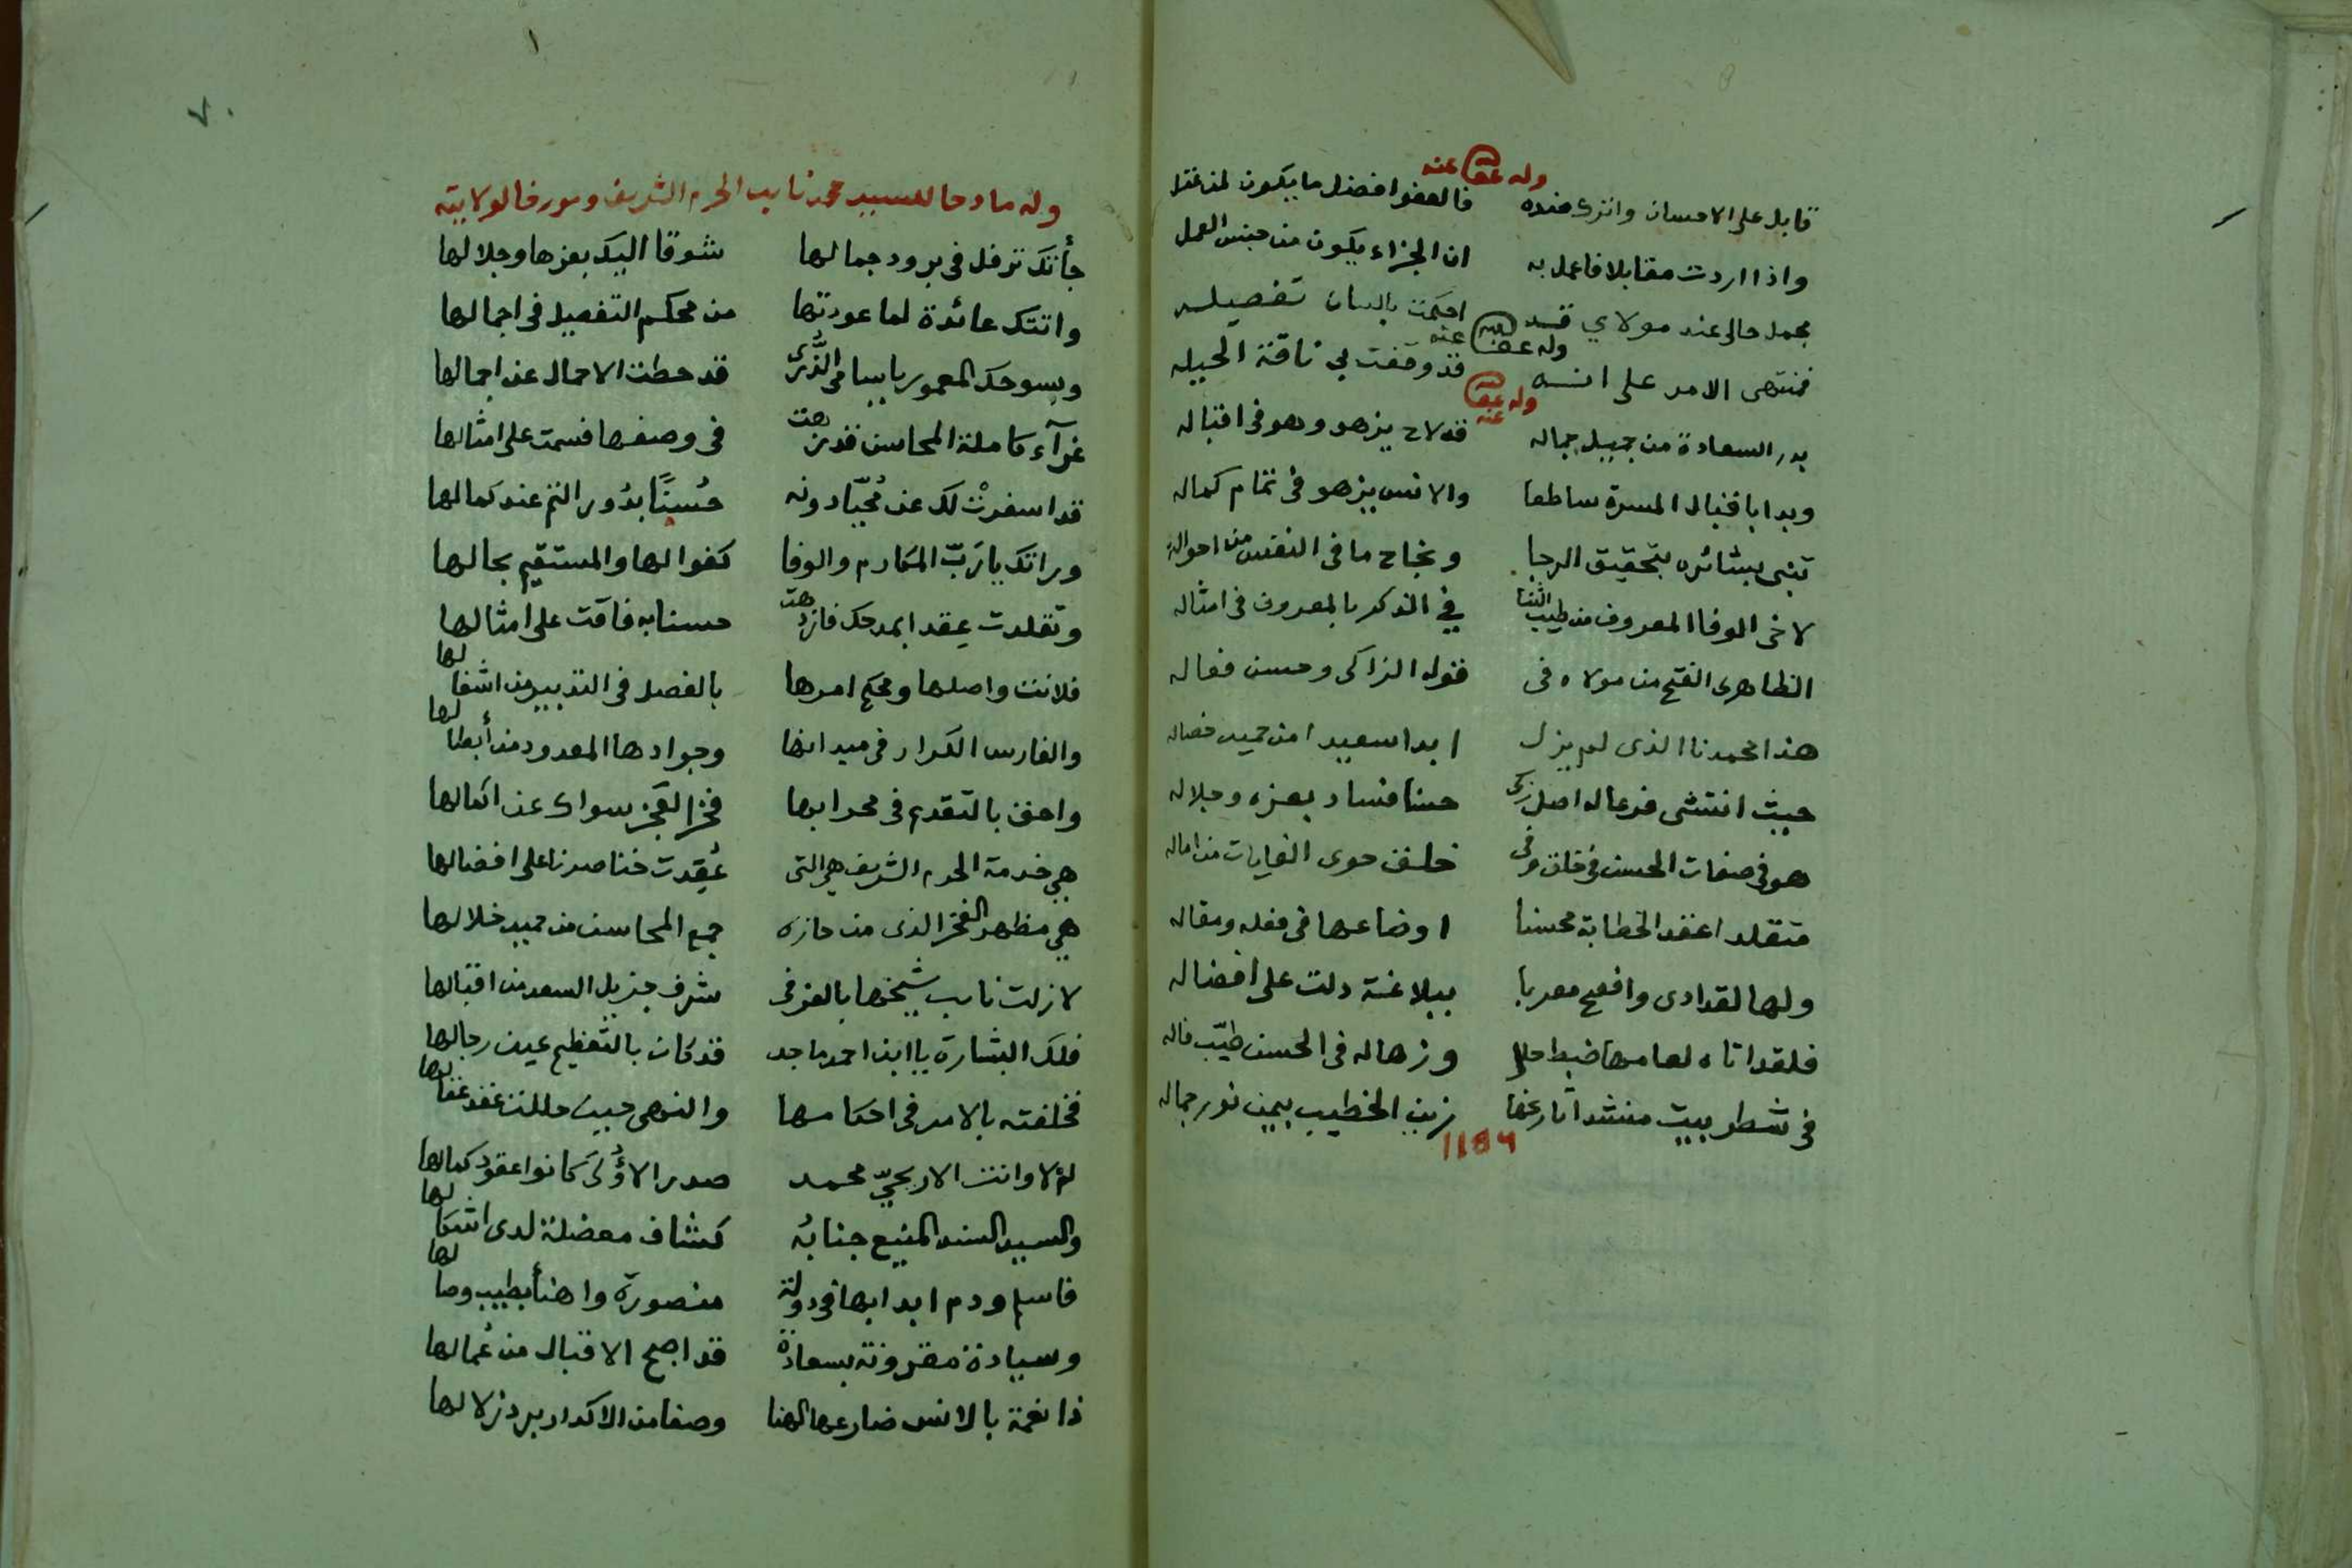 وله عفا الله عنه
قابل على الاحسان واترك ضده فالعفو افضل ما يكون لمن عقل
واذا اردت مقابلا فاعمل به ان الجزاء يكون من جنس العمل
وله عفا الله عنه
مجمل حالى عند مولاي قد احكمت بالبيان تفصيله
فمنتهى الامر على انه قد وقفت بي ناقة الحيله
وله عفا الله عنه
بدر السعادة من جميل جماله قد لاح يزهو وهو فى اقباله
وبدا باقبال المسرة ساطعا والانس يزهو فى تمام كماله
تنبى بشائره بتحقيق الرجا ونجاح ما فى النفس من احواله
لاخى الوفا المعروف من طيب الثنا في الذكر بالمعروف فى امثاله
الظاهرى الفتح من مولاه فى قوله الزاكى وحسن فعاله
هذا محمدنا الذى لم يزل ابدا سعيدا من حميد خصاله
حيث انتشى فرعا له اصل زكى حسنا فساد بعزه وجلاله
هو فى صفات الحسن فى خلق وفى خلف حوى الغايات من اماله
متقلدا عقد الخطابة محسنا اوضاعها فى فعله ومقاله
ولها لقد ادى وافصح معربا ببلاغة دلت على افضاله
فلقد اتاه لعامها ضبط حلا وزهاله فى الحسن طيّب فاله
فى شطر بيت منشد اثارعها زين الخطيب بيمن نور جماله
١١٥٩
٧٠
وله مادحا للسيد محمد نايب الحرم الشريف ومورخا لولايته
جأتك ترفل فى برود جمالها شوقا اليك بعزها وجلالها
واتتك عائدة لما عودتها من محكم التفصيل فى اجمالها
وبسوحك المعمور يا سامى الذُّرى قد حطت الاحمال عن اجمالها
غرآء كاملة المحاسن قد زهت فى وصفها فسمت على امثالها
قد اسفرتْ لك عن مُحيّا دونه حُسنًا بدُور التم عند كمالها
وراتك يا رَبّ المكارم والوفا كفوا لها والمستقيم بحالها
وتقلدت عقدا بمدحك فازدهت حسنا به فاقت على امثالها
فلانت واصلها ومحكم امرها بالفصل فى التدبير من اشغالها
والفارس الكرار فى ميدانها وجوادها المعدود من أبطالها
واحق بالتقدم فى محرابها فخرا لعجز سواك عن اكمالها
هي خدمة الحرم الشريف هي التى عُقِدت خناصرنا على افضالها
هي مظهر الفخر الذى من حازه جمع المحاسن من حميد خلالها
لا زلت نايب شيخها بالعز فى شرف جزيل السعد من اقبالها
فلك البشارة يا ابن احمد ماجد قد كان بالتعظيم عين رجالها
فخلفته بالامر فى احكامها والنهى حيث حللت عقد عقالها
لم لا وانت الاريحيّ محمد صدر الاؤُلَى كانوا عقود كمالها
والسيد السند المنيع جنابُه كشاف معضلة لدى اشكالها
فاسلم ودم ابدا بها فى دولة منصورة واهنأ بطيب وصالها
وسيادة مقرونة بسعادة قد اصبح الاقبال من عُمالها
ذا نعمة بالانس ضارعها الهنا وصفا من الاكدار برد زلالها